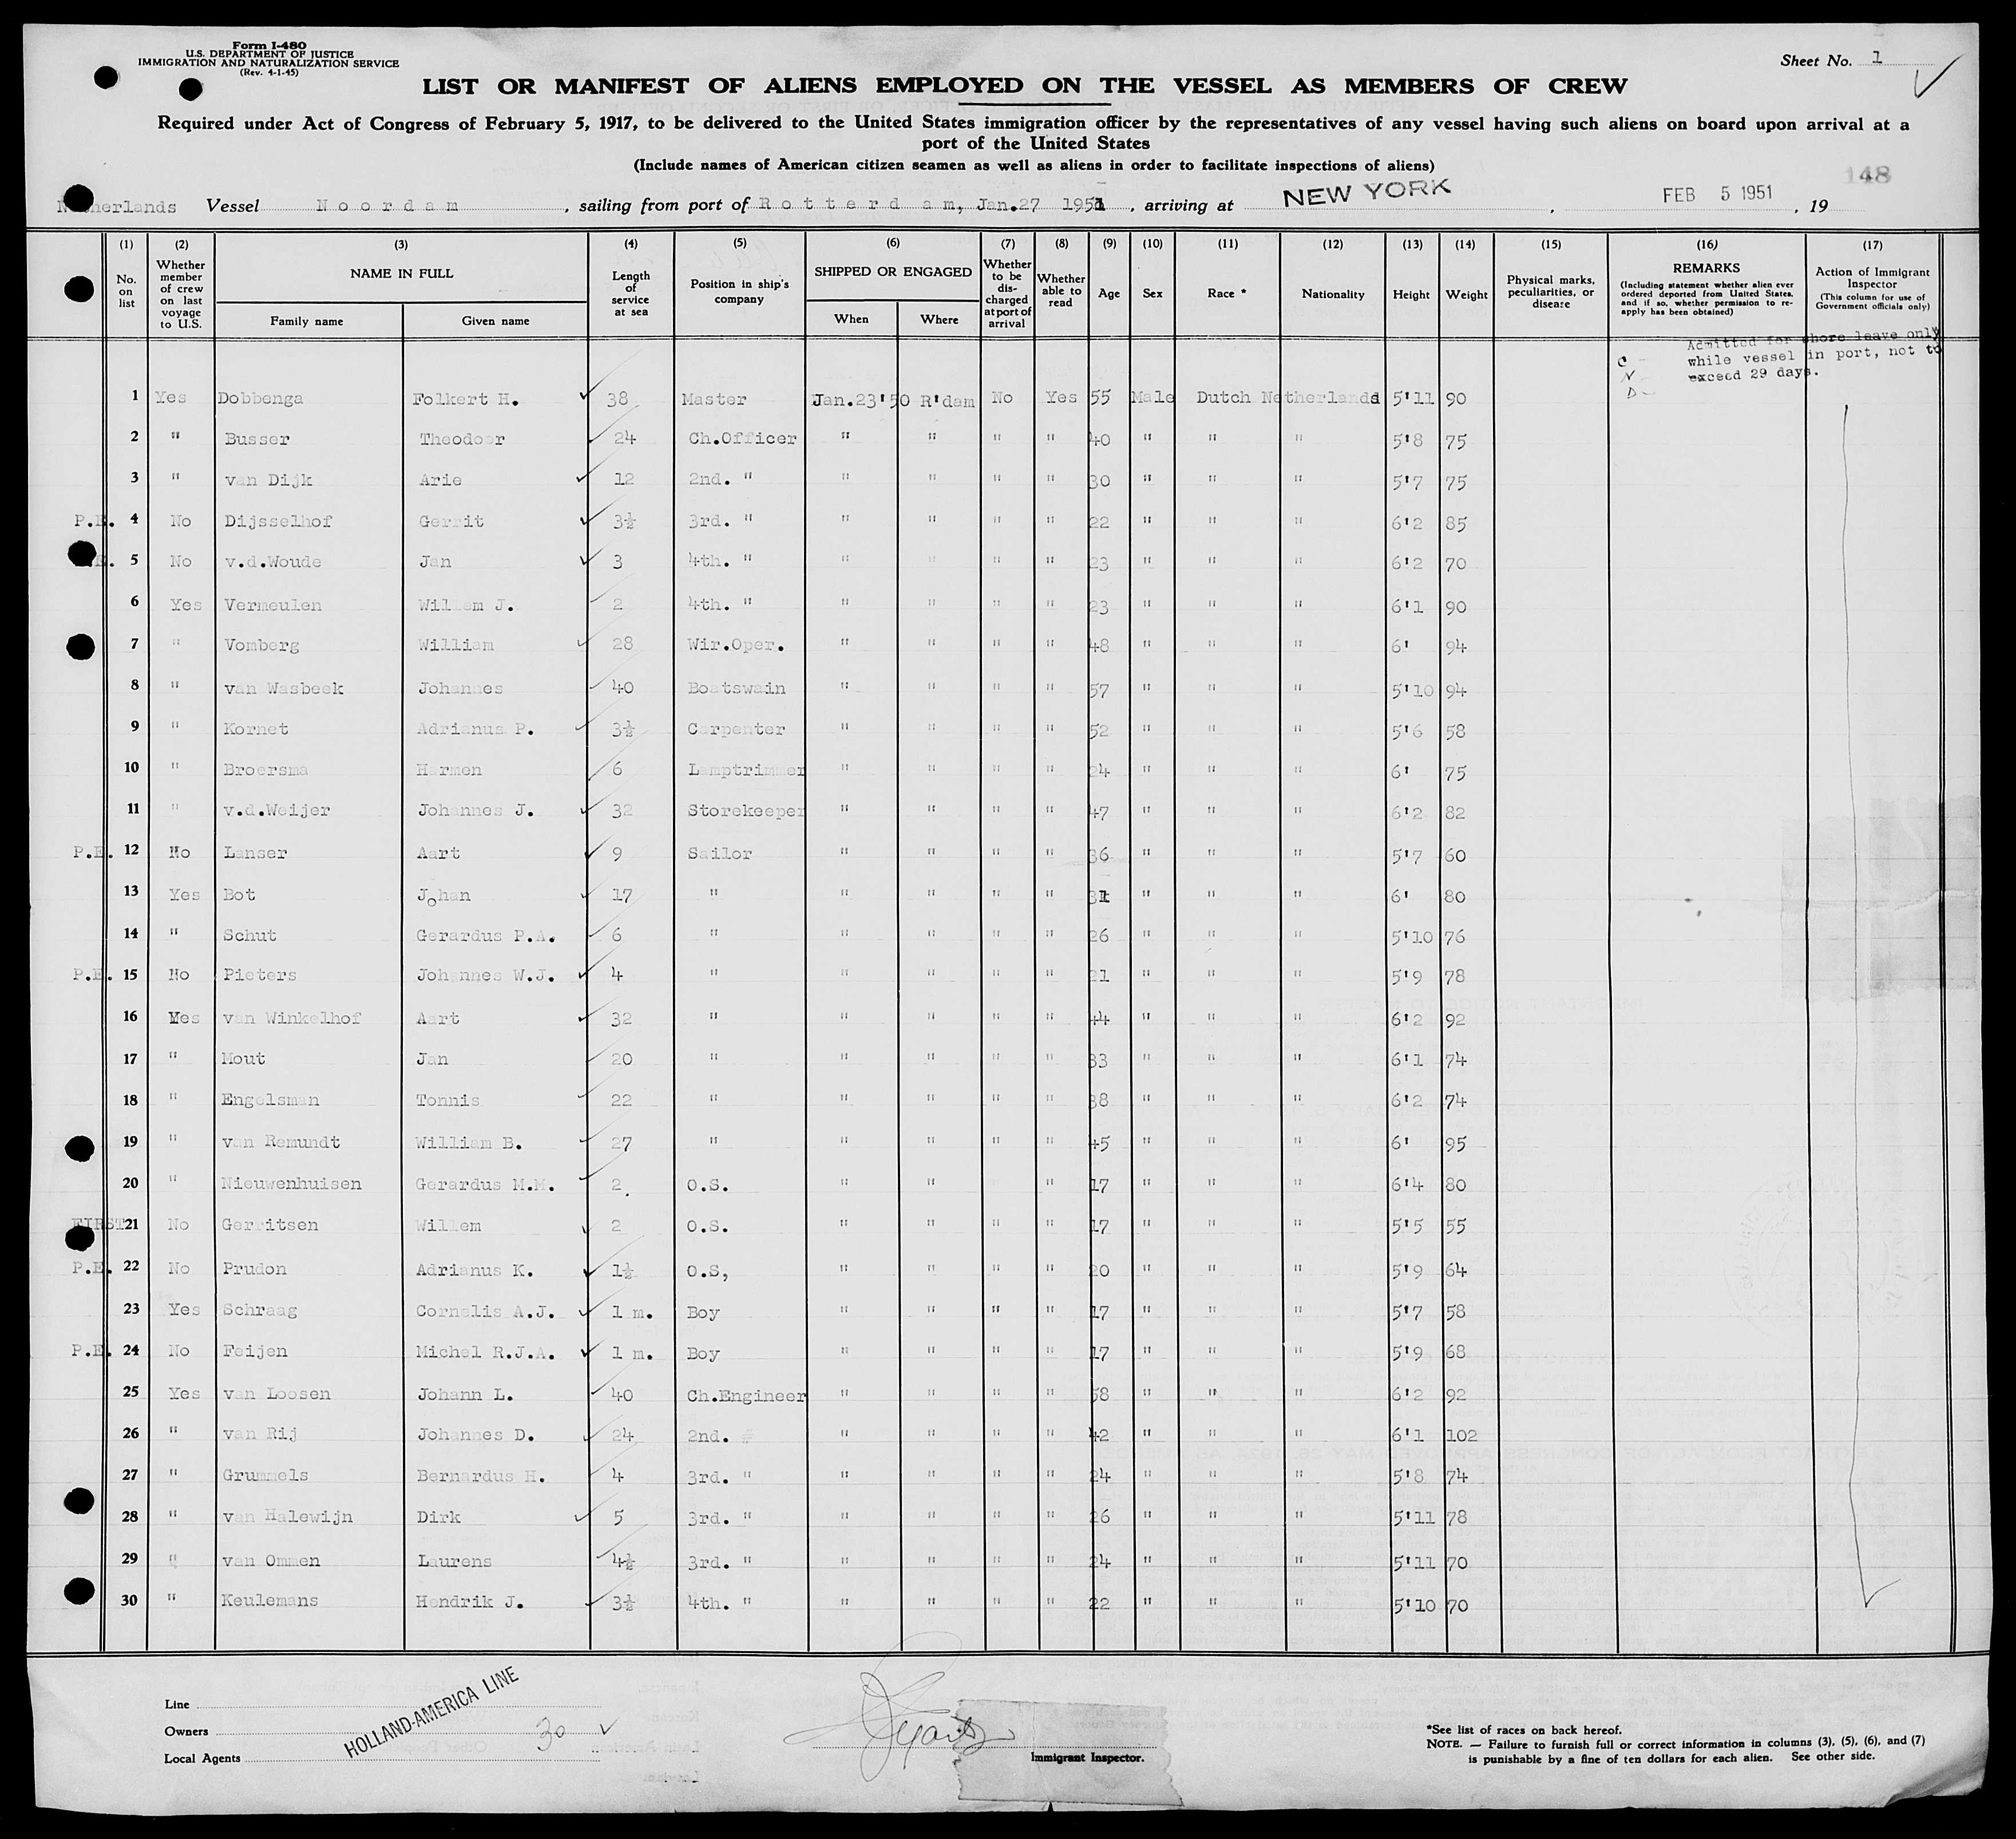 Form I-480
U.S. DEPARTMENT OF JUSTICE
IMMIGRATION AND NATURALIZATION SERVICE
(Rev. 4-1-45)
Sheet No. 1
LIST OR MANIFEST OF ALIENS EMPLOYED ON THE VESSEL AS MEMBERS OF CREW
Required under Act of Congress of February 5, 1917, to be delivered to the United States immigration officer by the representatives of any vessel having such aliens on board upon arrival at a
port of the United States
(Include names of American citizen seamen as well as aliens in order to facilitate inspections of aliens)
148
Netherlands Vessel Noordam, sailing from port of Rotterdam, Jan.27 1951, arriving at NEW YORK, FEB 5 1951, 19
(1) No. on list (2) Whether member of crew on last voyage to U.S. (3) NAME IN FULL Family name Given name (4) Length of service at sea (5) Position in ship's company (6) SHIPPED OR ENGAGED When Where (7) Whether to be discharged at port of arrival (8) Whether able to read (9) Age (10) Sex (11) Race * (12) Nationality (13) Height (14) Weight (15) Physical marks, peculiarities, or disease (16) REMARKS (Including statement whether alien ever ordered deported from United States, and if so, whether permission to re-apply has been obtained) (17) Action of Immigrant Inspector (This column for use of Government officials only)
C - N - D - Admitted for shore leave only
while vessel in port, not to
exceed 29 days.
1 Yes Dobbenga Folkert H. 38 Master Jan.23'50 R'dam No Yes 55 Male Dutch Netherlands 5'11 90
2 " Busser Theodoor 24 Ch.Officer " " " " 40 " " " 5'8 75
3 " van Dijk Arie 12 2nd. " " " " " 30 " " " 5'7 75
P.E. 4 No Dijsselhof Gerrit 3½ 3rd. " " " " " 22 " " " 6'2 85
P.E. 5 No v.d.Woude Jan 3 4th. " " " " " 23 " " " 6'2 70
6 Yes Vermeulen Willem J. 2 4th. " " " " " 23 " " " 6'1 90
7 " Vomberg William 28 Wir.Oper. " " " " 48 " " " 6' 94
8 " van Wasbeek Johannes 40 Boatswain " " " " 57 " " " 5'10 94
9 " Kornet Adrianus P. 3½ Carpenter " " " " 52 " " " 5'6 58
10 " Broersma Harmen 6 Lamptrimmer " " " " 24 " " " 6' 75
11 " v.d.Weijer Johannes J. 32 Storekeeper " " " " 47 " " " 6'2 82
P.E. 12 No Lanser Aart 9 Sailor " " " " 36 " " " 5'7 60
13 Yes Bot Johan 17 " " " " " 31 " " " 6' 80
14 " Schut Gerardus P.A. 6 " " " " " 26 " " " 5'10 76
P.E. 15 No Pieters Johannes W.J. 4 " " " " " 21 " " " 5'9 78
16 Yes van Winkelhof Aart 32 " " " " " 44 " " " 6'2 92
17 " Mout Jan 20 " " " " " 33 " " " 6'1 74
18 " Engelsman Tonnis 22 " " " " " 38 " " " 6'2 74
19 " van Remundt William B. 27 " " " " " 45 " " " 6' 95
20 " Nieuwenhuisen Gerardus M.M. 2. O.S. " " " " 17 " " " 6'4 80
FIRST 21 No Gerritsen Willem 2 O.S. " " " " 17 " " " 5'5 55
P.E. 22 No Prudon Adrianus K. 1½ O.S, " " " " 20 " " " 5'9 64
23 Yes Schraag Cornelis A.J. 1 m. Boy " " " " 17 " " " 5'7 58
P.E. 24 No Feijen Michel R.J.A. 1 m. Boy " " " " 17 " " " 5'9 68
25 Yes van Loosen Johann L. 40 Ch.Engineer " " " " 58 " " " 6'2 92
26 " van Rij Johannes D. 24 2nd. " " " " " 42 " " " 6'1 102
27 " Grummels Bernardus H. 4 3rd. " " " " " 24 " " " 5'8 74
28 " van Halewijn Dirk 5 3rd. " " " " " 26 " " " 5'11 78
29 " van Ommen Laurens 4½ 3rd. " " " " " 24 " " " 5'11 70
30 " Keulemans Hendrik J. 3½ 4th. " " " " " 22 " " " 5'10 70
Line
Owners
Local Agents
HOLLAND-AMERICA LINE
30
Immigrant Inspector.
*See list of races on back hereof.
NOTE. — Failure to furnish full or correct information in columns (3), (5), (6), and (7)
is punishable by a fine of ten dollars for each alien. See other side.